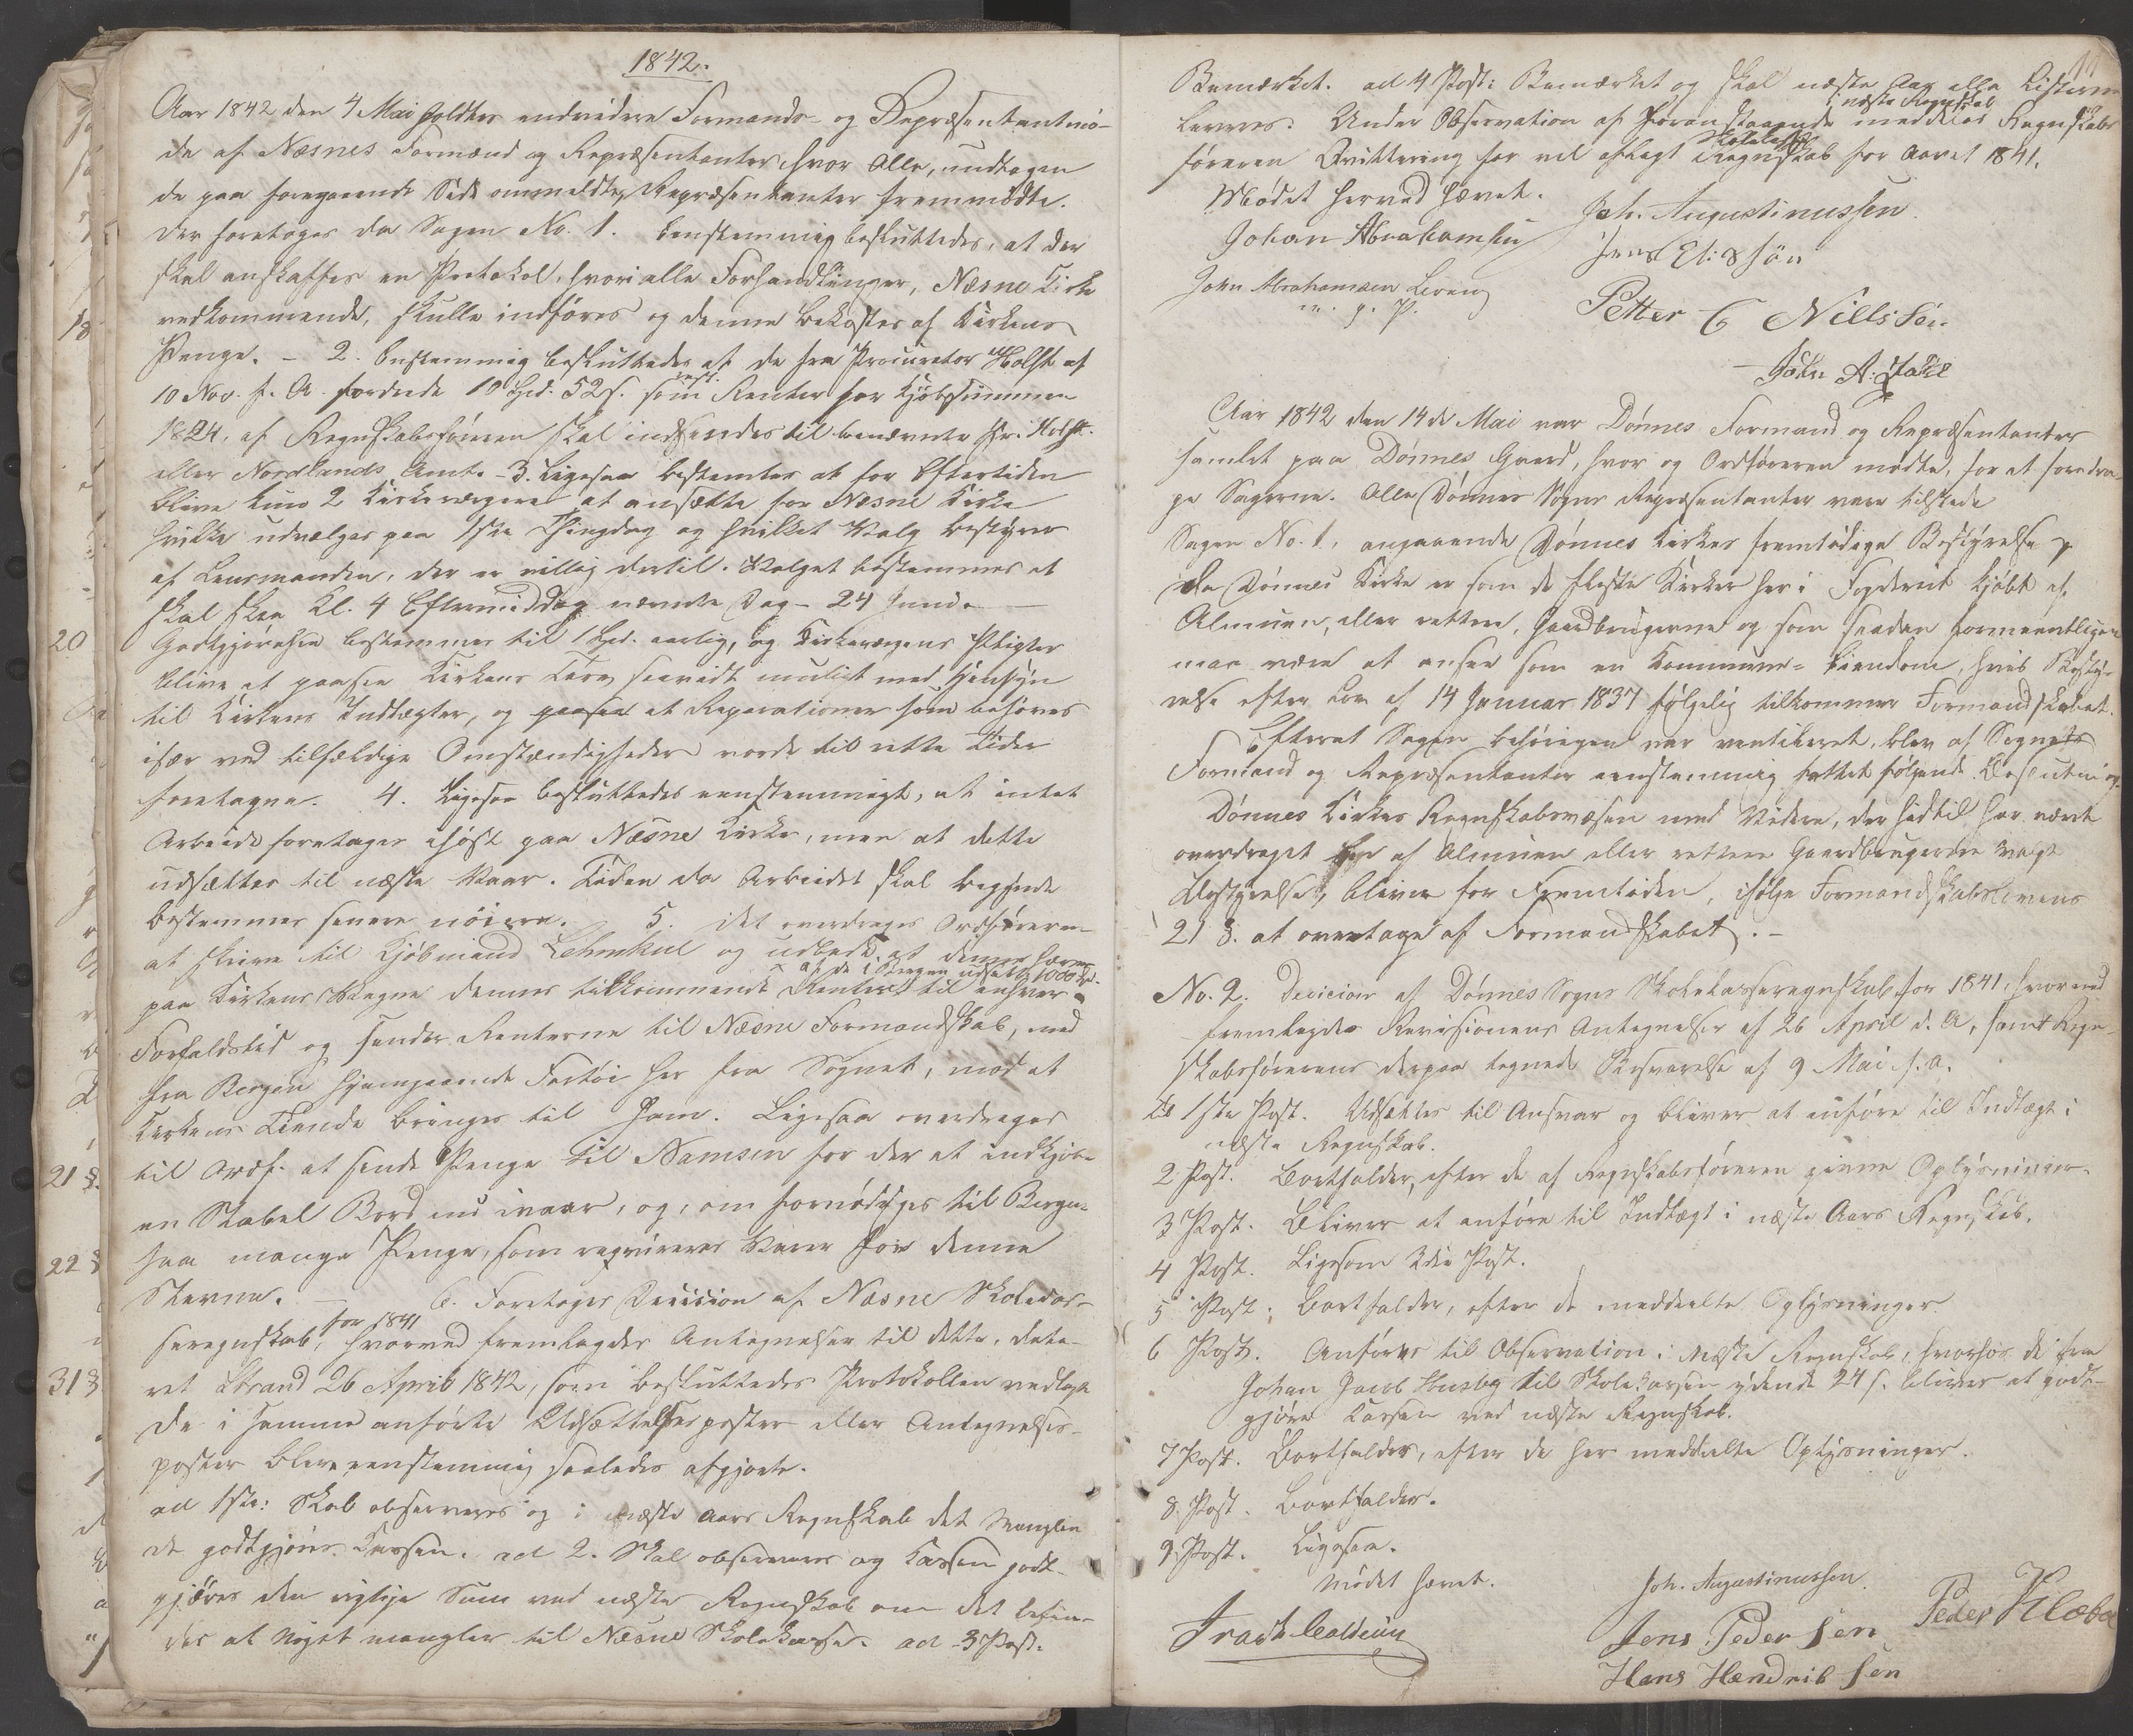 1842.
Aar 1842 den 4 Mai holdtes endvidere Formands- og Repræsentantmö-
de af Næsnes Formænd og Repræsentanter, hvor Alle, undtagen
de paa foregaaende Side ommeldte, Repræsentanter fremmödte.
Der foretoges da Sagen No. 1. Eenstemmig besluttedes, at der
skal anskaffes en Protokol, hvori alle Forhandlinger, Næsne Kirke
vedkommende, skulle indföres og denne bekostes af Kirkens
Penge. - 2. Enstemmig besluttedes at de fra Procurator Holst af
10 Nov. f. A. fordrede 10 Spd. 52 s. som Renter for Kjöbesummen
1824, af Regnskabsföreren skal indsendes til benævnte Hr. Holst
eller Nordlands Amt. - 3. Ligesaa bestemtes at for Eftertiden
blive kun 2 Kirkeværgere at ansætte for Næsne Kirke
hvilke udvælges paa 1ste Thingdag og hvilket Valg bestyres
af Lensmanden, der er villig dertil. Valget bestemmes at
skal skee Kl. 4 Eftermiddag nævnte Dag - 24 Juni. -
Godtgjörelsen bestemmes til 1 Spd. aarlig, og Kirkeværgens Pligter
blive at paasee Kirkens Tarv saavidt muligt med Hensyn
til Kirkens Indtægter, og paasee at Reparationer som behöves
især ved tilfældige Omstændigheder vorde til rette Tider
foretagne. 4. Ligesaa besluttedes eenstemmigt, at intet
Arbeide foretages ihöst paa Næsne Kirke, men at dette
udsættes til næste Vaar. Tiden da Arbeidet skal begynde
bestemmes senere nöiere. 5. Det overdrages Ordföreren
at skrive til Kjöbmand Lehmkul og udbede, at denne hæver
af de i Bergen udsatte 1000 Spd.
paa Kirkens Vegne dennes tilkommende Renter til enhver
Forfaldstid og sender Renterne til Næsne Formandskab, med
fra Bergen hjemgaaende Fartöi her fra Sognet, mod at
Kirkens Tiende bringes til ham. Ligesaa overdrages
til Ordf. at sende Penge til Namsen for der at indkjöbe
en Stabel Bord nu ivaar, og, om fornödiges til Bergen
saa mange Penge, som reqvireres Varer for denne
Stevne. - 6. Foretoges Decision af Næsne Skolecas-
for 1841
seregnskab, hvorved fremlagdes Antegnelser til dette, date-
ret Strand 26 April 1842, som besluttedes Protokollen vedlagt
De i samme anförte Udsættelsesposter eller Antegnelses-
poster bleve eenstemmig saaledes afgjorte.
ad 1ste: Skal observeres og i næste Aars Regnskab det Manglen
de godtgjöres Kassen. ad 2. Skal observeres og Kassen godt-
gjöres den rigtige Sum ved næste Regnskab om det befin-
des at Noget mangler til Næsne Skolekasse. ad 3 Post.
Bemærket. ad 4 Post: Bemærket og skal næste Aar alle Listerne
i næste Regnskab
leveres. Under Observation af Foranstaaende meddeles Regnskabs
föreren Qvittering for vel aflagt Regnskab for Aaret 1841.
Mödet herved hævet.
Joh. Augustinussen
Johan Abrahamsen
Jens Elissön
John Abrahamsen Leveng
m. f. P.
Petter C Nillsön
John A.
Aar 1842 den 14de Mai var Dönnes Formænd og Repræsentanter
samlet paa Dönnes Gaard, hvor og Ordföreren mödte, for at foredra-
ge Sagerne. Alle Dönnes Sogns Repræsentanter vare tilstede
Sagen No. 1, angaaende Dönnes Kirkes fremtidige Bestyrelse
Da Dönnes Kirke er som de fleste Kirker her i Fogderiet kjöbt af
Almuen, eller rettere, Gaardbrugerne og som saadan formeentligen
maa være at ansee som en Kommune-Eiendom, hvis Besty-
relse efter Lov af 14 Januar 1837 fölgelig tilkommer Formandskabet.
Efterat Sagen behörigen var ventileret, blev af Sognets
Formænd og Repræsentanter eenstemmig fattet fölgende Beslutning
Dönnes Kirkes Regnskabsvæsen med Videre, der hidtil har været
overdraget af Almuen eller rettere Gaardbrugerne valgt
Bestyrelse, bliver for Fremtiden, ifölge Formandskabslovens
21 §. at overtage af Formandskabet. -
No. 2. Decision af Dönnes Sogns Skolekasseregnskab for 1841, hvorved
fremlagdes Revisionens Antegnelser af 26 April d. A, samt Regn-
skabsförerens derpaa tegnede Besvarelse af 9 Mai s. a.
Til 1ste Post. Udsættes til Ansvar og bliver at anföre til Indtægt i
næste Regnskab.
2 Post. Bortfalder, efter de af Regnskabsföreren givne Oplysninger.
3 Post. Bliver at anföre til Indtægt i næste Aars Regnskab.
4 Post. Ligesom 3die Post.
5 Post. Bortfalder, efter de meddeelte Oplysninger.
6 Post. Anföres til Observation i næste Regnskab, hvorfor de fra
Johan Jacob Husby til Skolekassen ydende 24 s. bliver at godt-
gjöre Kassen ved næste Regnskab.
7 Post. Bortfalder, efter de her meddeelte Oplysninger.
8 Post. Bortfalder.
9 Post. Ligesaa.
Mödet hævet.
Joh. Augustinussen.
Peder Klæboe
Jens Pedersen
Hans Hendriksen
18
20
21 §.
22 §
31 §